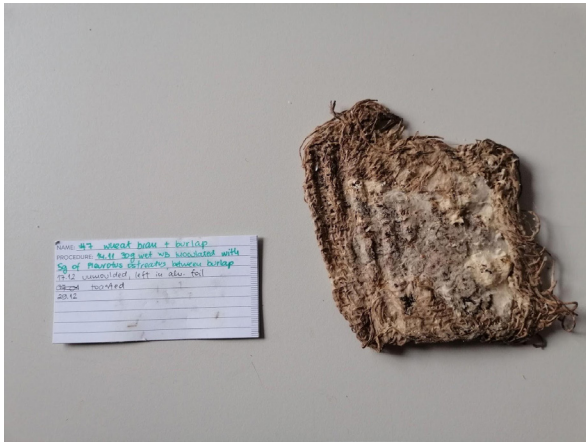 NAME: #7 wheat bran + burlap
PROCEDURE: 30g wet WB inoculated with
5g of Pleurotus ostreatus, between burlap
17.12 unmoulded, left in alu. foil
toasted
20.12